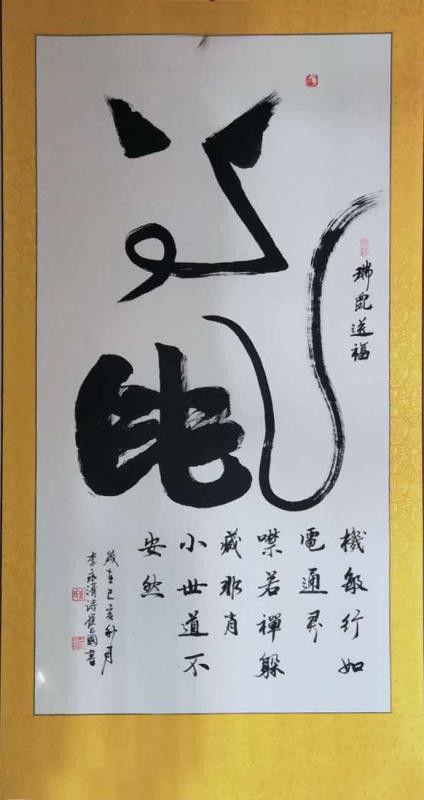 鼠
瑞鼠送福
機敏行如
電通灵
噤若禪躲
藏非肖
小世道不
安然
歲在己亥秋月
李永詩國書